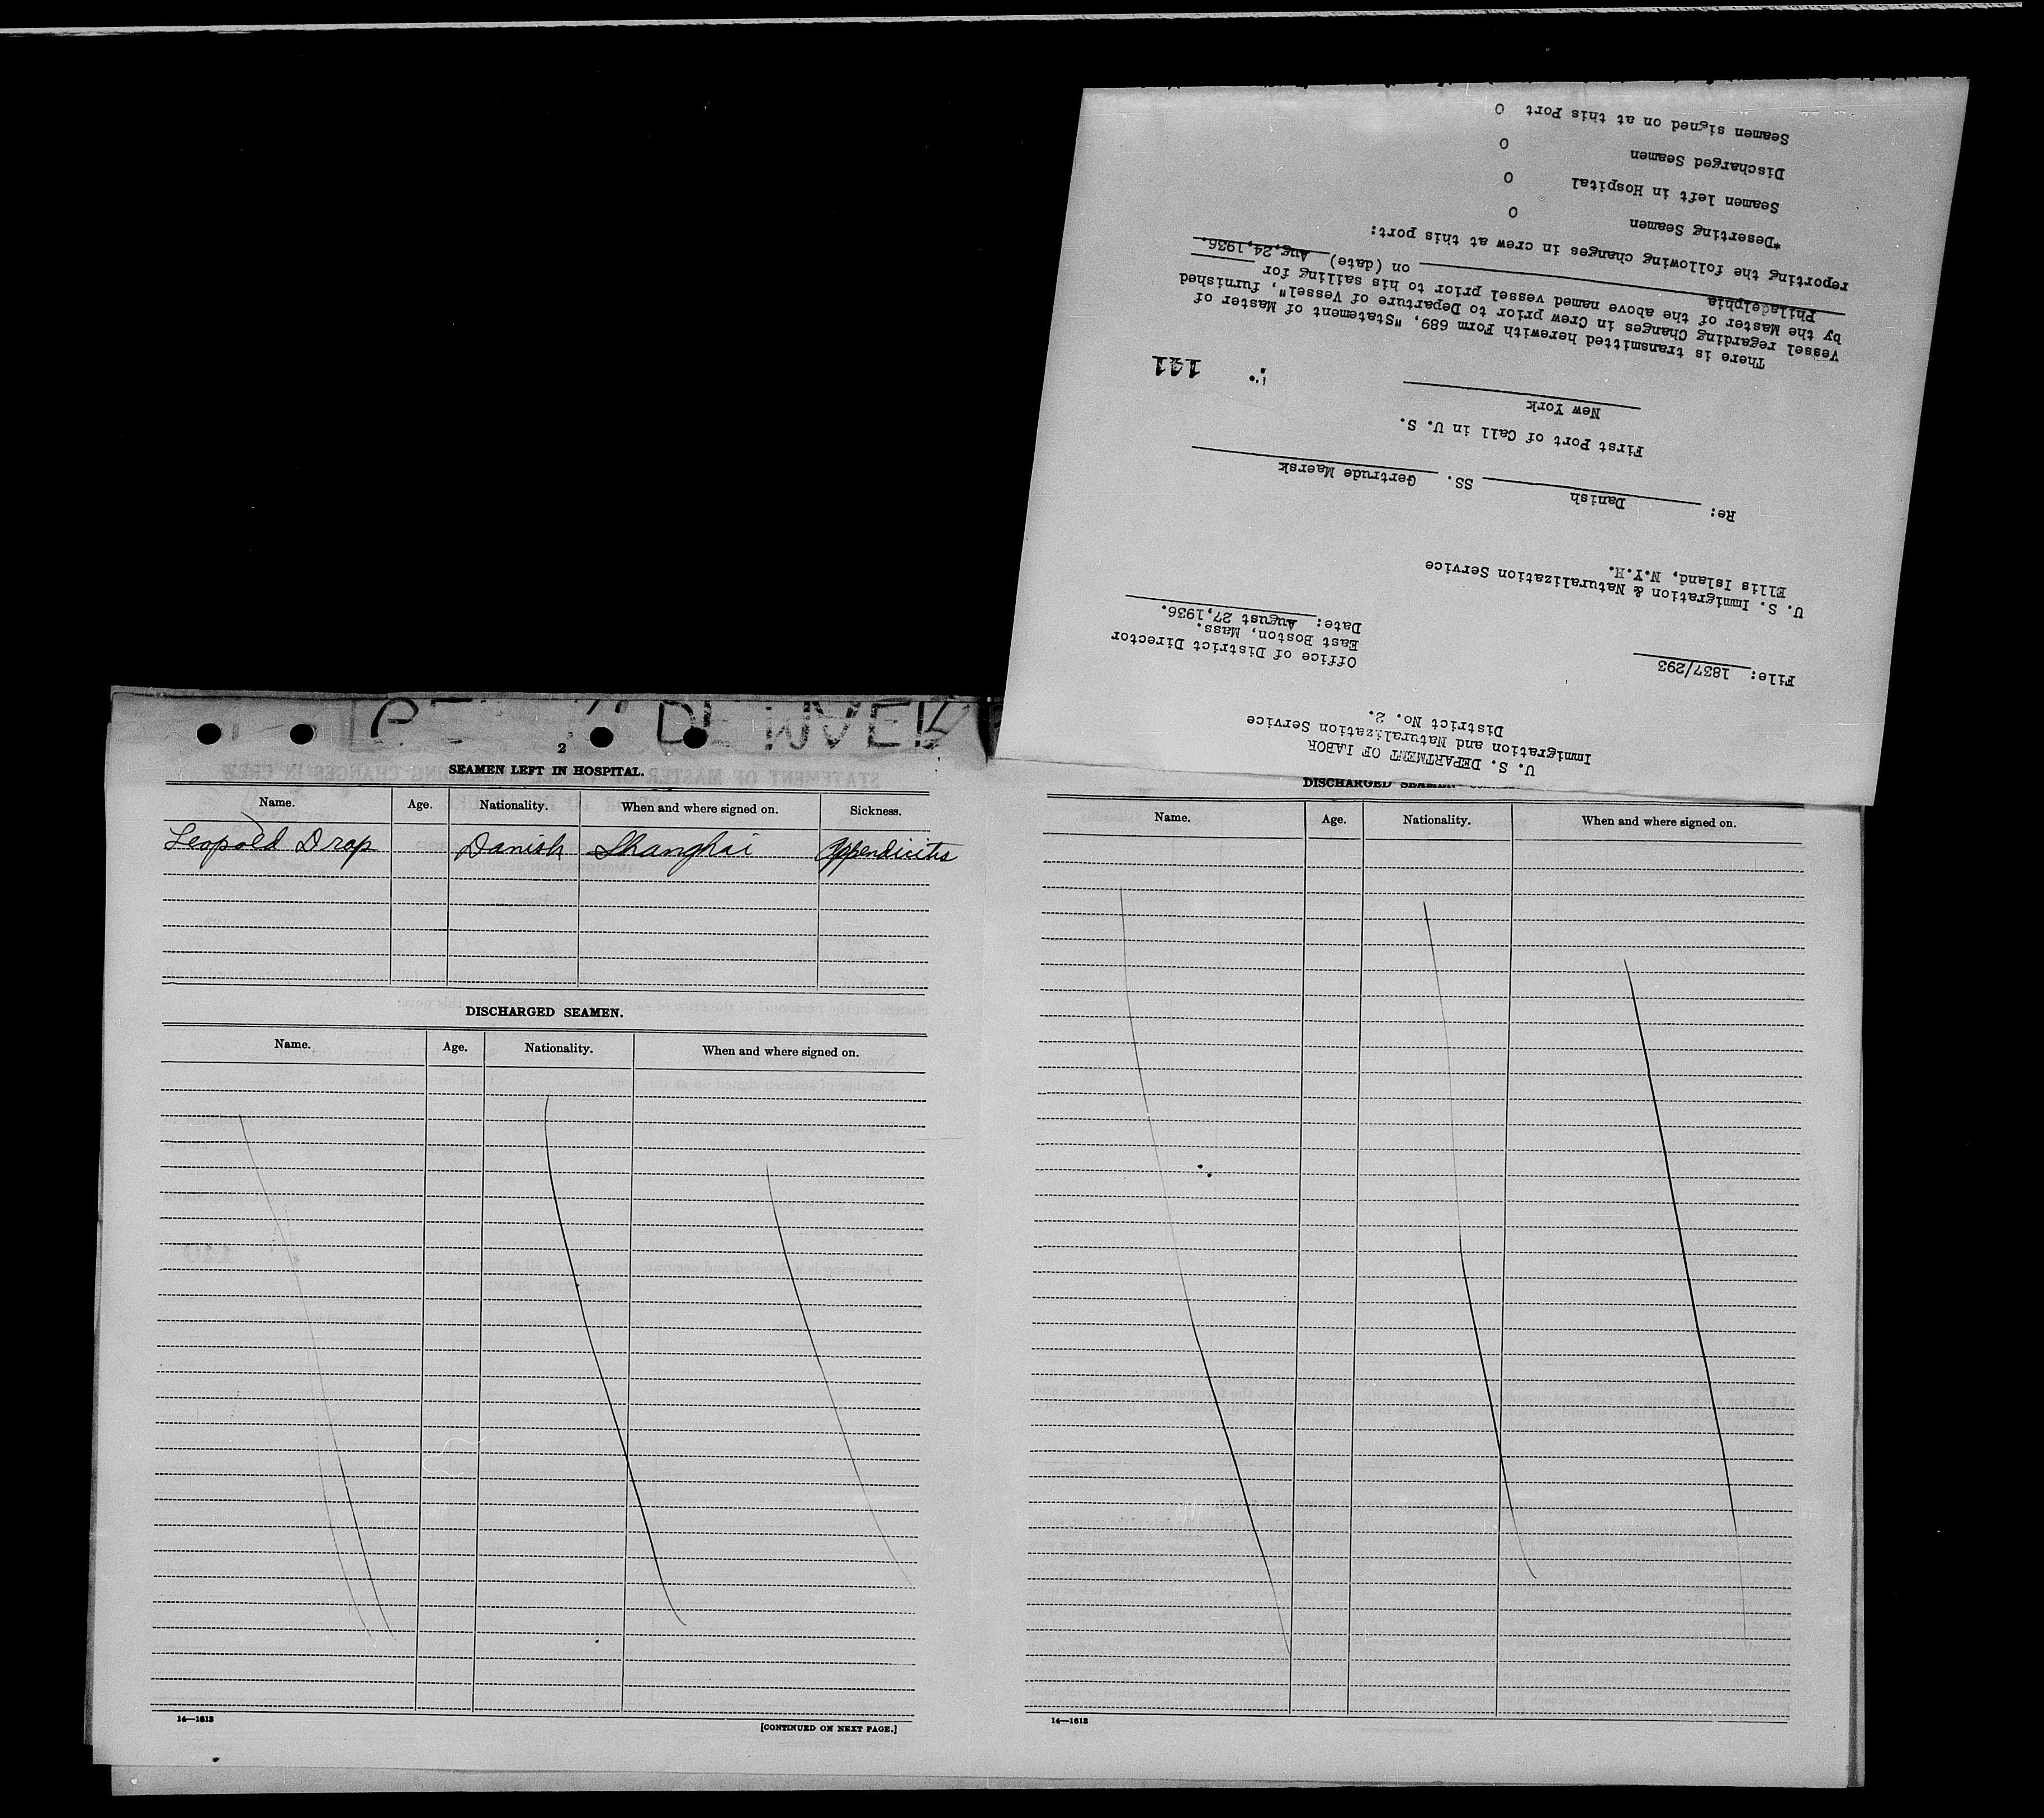 2
SEAMEN LEFT IN HOSPITAL.
Name. Age. Nationality. When and where signed on. Sickness.
Leopold Drop Danish Shanghai Appendicitis
DISCHARGED SEAMEN.
Name. Age. Nationality. When and where signed on.
14—1613
[CONTINUED ON NEXT PAGE.]
DISCHARGED SEAMEN
Name. Age. Nationality. When and where signed on.
14—1613
U. S. DEPARTMENT OF LABOR
Immigration and Naturalization Service
District No. 2.
File: 1837/293
Office of District Director
East Boston, Mass.
Date: August 27,1936.
U. S. Immigration & Naturalization Service
Ellis Island, N.Y.H.
Re: Danish SS. Gertrude Maersk
First Port of Call in U. S.
New York
141
There is transmitted herewith Form 689, "Statement of Master of
Vessel regarding Changes in Crew prior to Departure of Vessel", furnished
by the Master of the above named vessel prior to his sailing for
Philadelphia on (date) Aug.24,1936.
reporting the following changes in crew at this port:
*Deserting Seamen 0
Seamen left in Hospital 0
Discharged Seamen 0
Seamen signed on at this Port 0